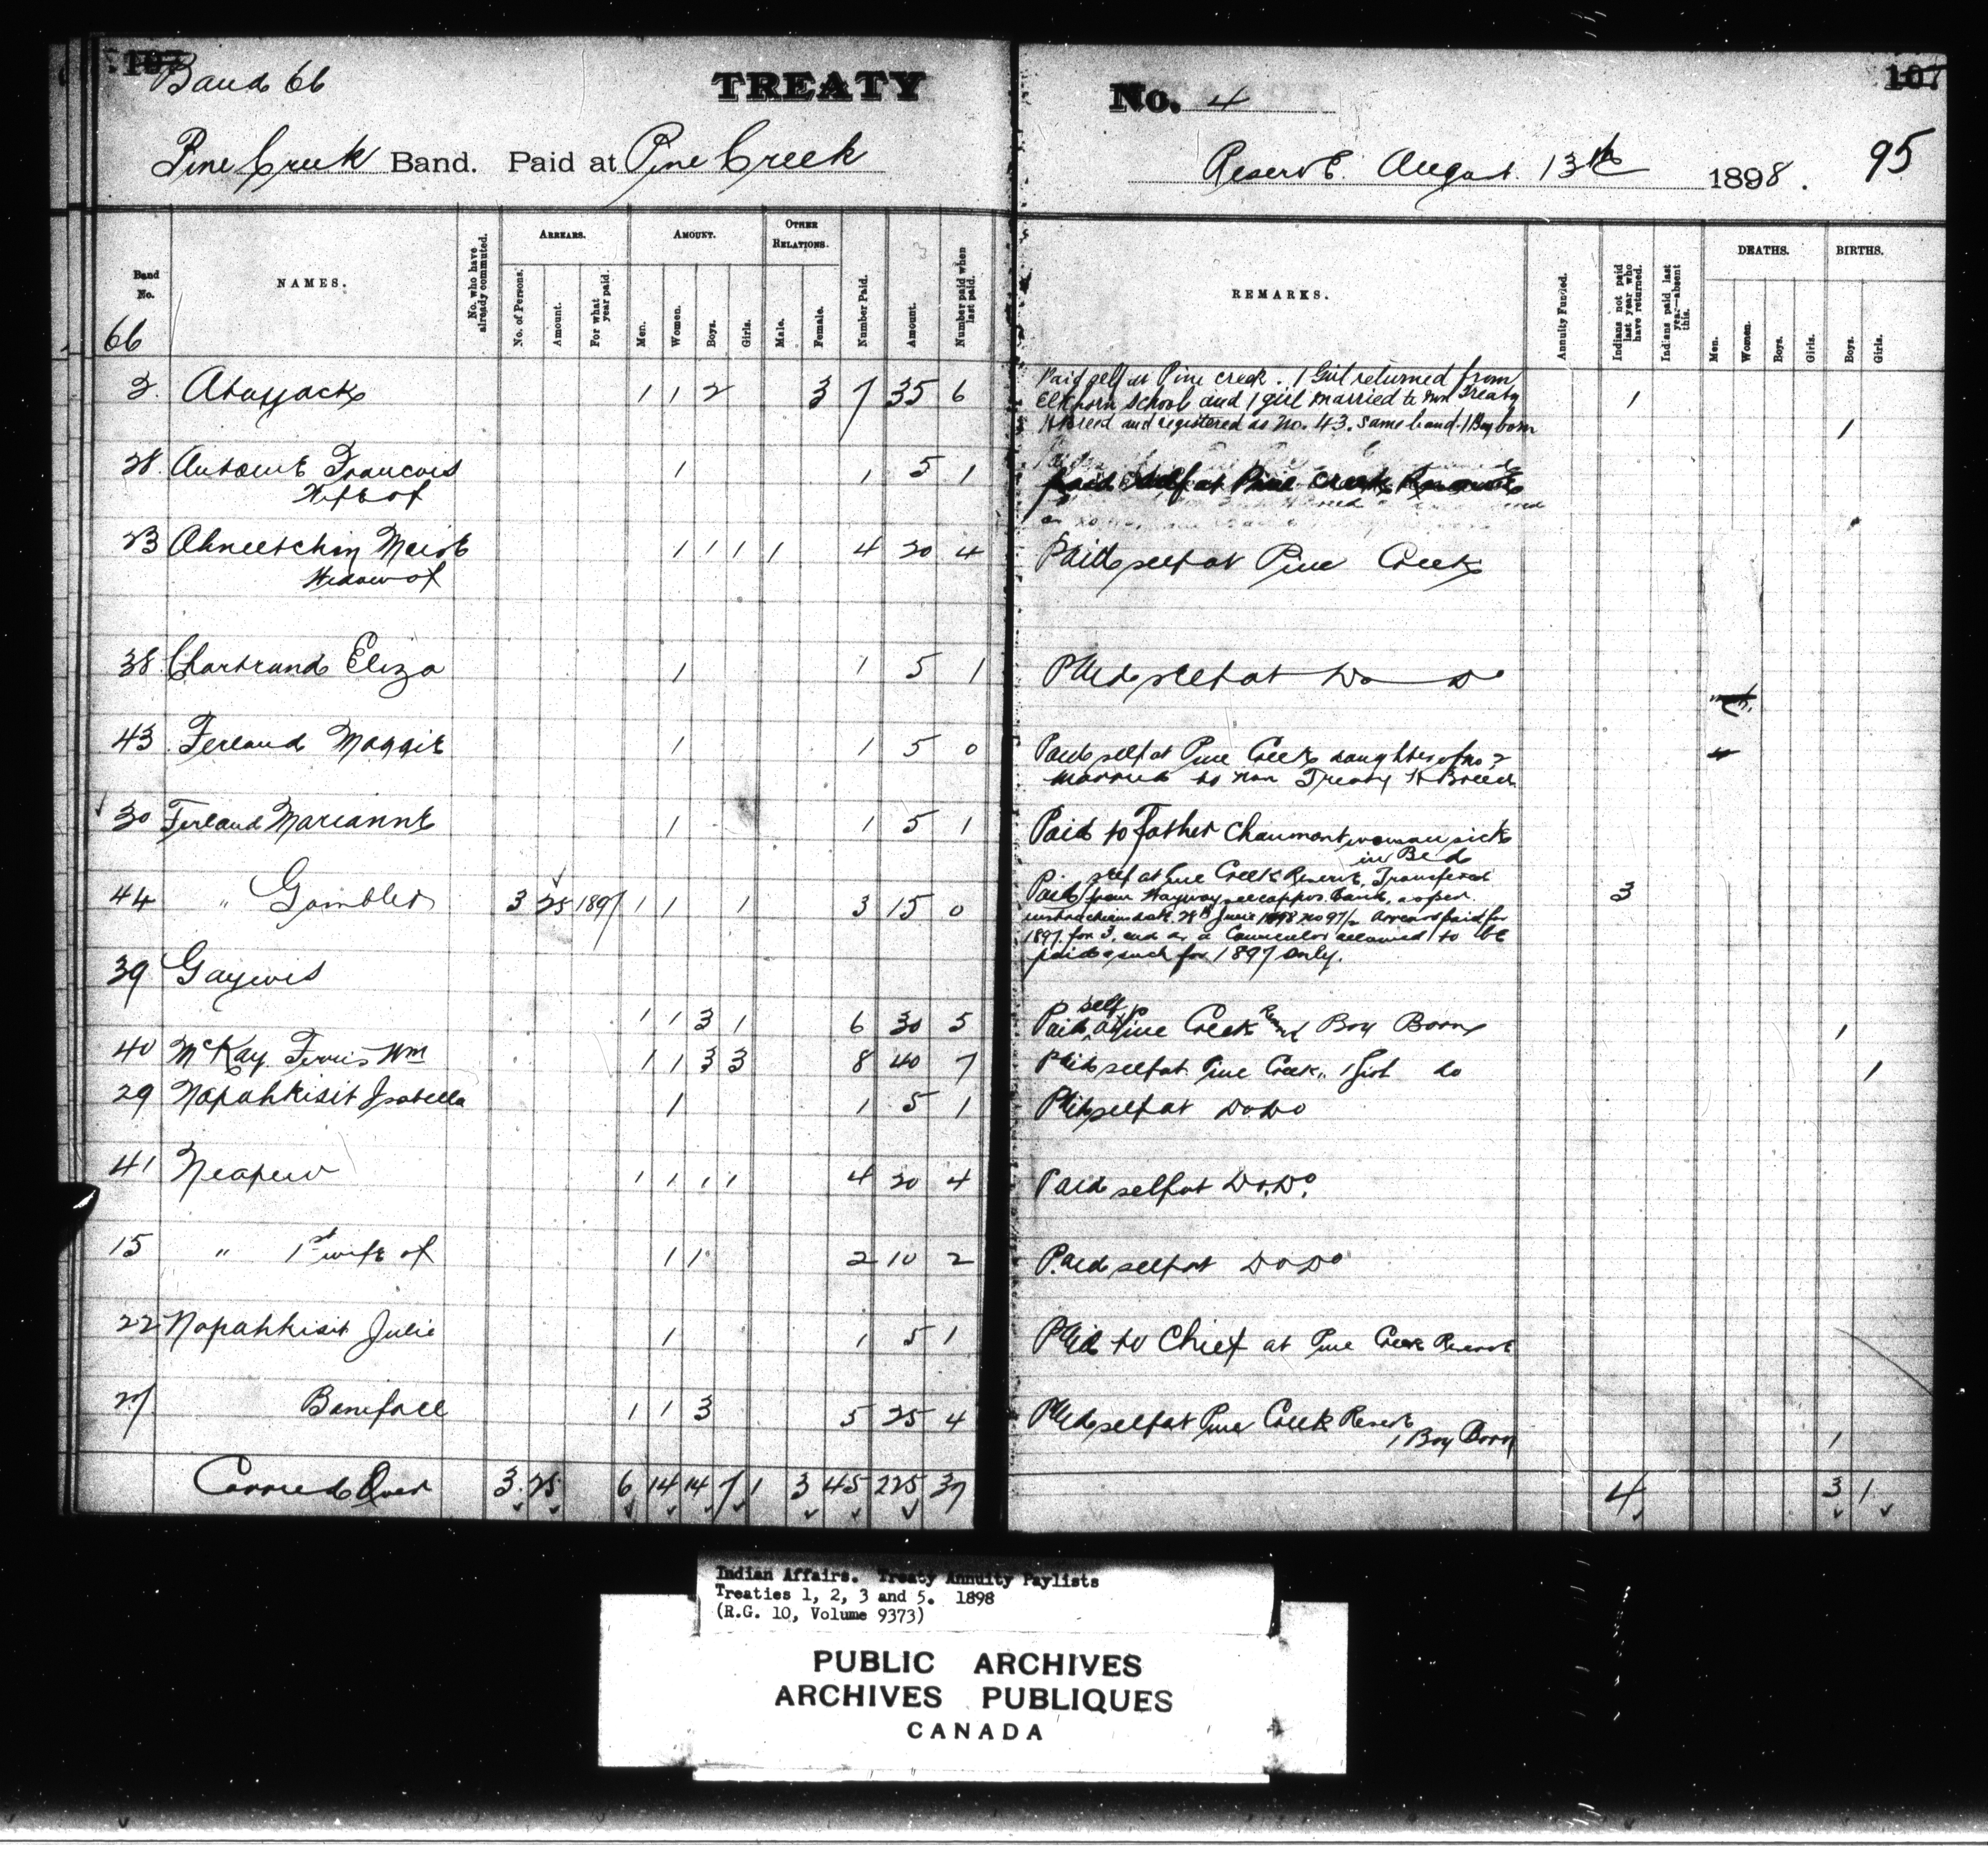 107 107
Band 66 TREATY No. 4
Pine Creek Band. Paid at Pine Creek Reserve. August. 13th 1898. 95
Band No. NAMES. No. who have already commuted. ARREARS. No. of Persons. Amount. For what year paid. AMOUNT. Men. Women. Boys. Girls. OTHER RELATIONS. Male. Female. Number Paid. Amount. Number paid when last paid. REMARKS. Annuity Funded. Indians not paid last year who have returned. Indians paid last year—absent this. DEATHS. Men. Women. Boys. Girls. BIRTHS. Boys. Girls.
66
2. 1 1 2 3 7 35 6 Paid self at Pine creek. 1 Girl returned from
Elkhorn School and 1 girl married to non Treaty 1
H Breed and registered as No. 43. Same band. 1 Boy born 1
28. Antoine Francois 1 1 5 1 Paid self at Pine Creek Reserve
Wife of
23 Marie 1 1 1 1 4 20 4 Paid self at Pine Creek
Widow of
38. Chartrand Eliza 1 1 5 1 Paid self at Do Do
43. Ferland Maggie 1 1 5 0 Paid self at Pine Creek daughter of No 2
married to non Treaty H Breed
30 Ferland Marianne 1 1 5 1 Paid to Father Chaumont woman sick
in Bed
44 " Gambler 3 25 1897 1 1 1 3 15 0 Paid self at Pine Creek Reserve, Transfered 3
from band, as per
28th June 1898 No 97/2 Arrears paid for
1897 for 3. and as a Councilor allowed to be
paid as such for 1897 only.
39 Gaywis
1 1 3 1 6 30 5 Paid self at Pine Creek Boy Born 1
40 McKay Wm 1 1 3 3 8 40 7 Paid self at Pine Creek. 1 Girl do 1
29 Napahkisit Isabella 1 1 5 1 Paid self at Do Do
41 Neapew 1 1 1 1 4 20 4 Paid self at Do. Do.
15 " 1st wife of 1 1 2 10 2 Paid self at Do Do
22 Napahkisit Julie 1 1 5 1 Paid to Chief at Pine Creek Reserve
27. Boniface 1 1 3 5 25 4 Paid self at Pine Creek Reserve
1 Boy Born 1
Carried Over 3 25 6 14 14 7 1 3 45 225 37 4 3 1
Indian Affairs. Treaty Annuity Paylists
Treaties 1, 2, 3 and 5. 1898
(R.G. 10, Volume 9373)
PUBLIC ARCHIVES
ARCHIVES PUBLIQUES
CANADA